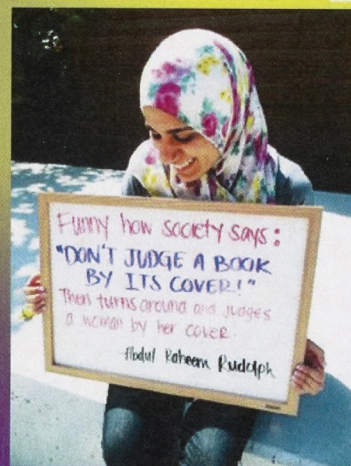 Funny how society says:
"DON'T JUDGE A BOOK
BY ITS COVER!"
Then turns around and judges
a woman by her cover.
-Abdul Raheem Rudolph